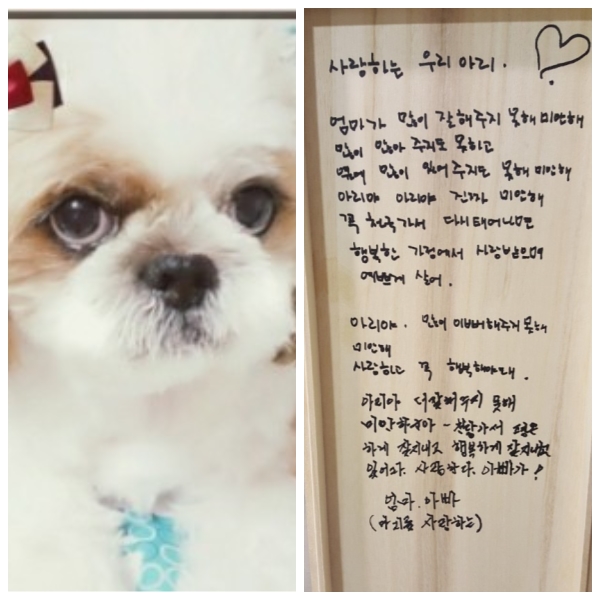 사랑하는 우리 아리.
엄마가 많이 잘해주지 못해 미안해
많이 안아 주지도 못하고
옆에 많이 있어 주지도 못해 미안해
아리야 아리야 진짜 미안해
꼭 천국가서 다시 태어나면
행복한 가정에서 사랑받으며
예쁘게 살아.
아리야. 많이 이뻐해주지 못해
미안해
사랑하고 꼭 행복해야돼.
아리야 더 잘해주지 못해
미안하구나 - 천당가서 평온
하게 잘지내고 행복하게 잘지내고
있어라. 사랑한다. 아빠가!
엄마. 아빠
(아리를 사랑하는)